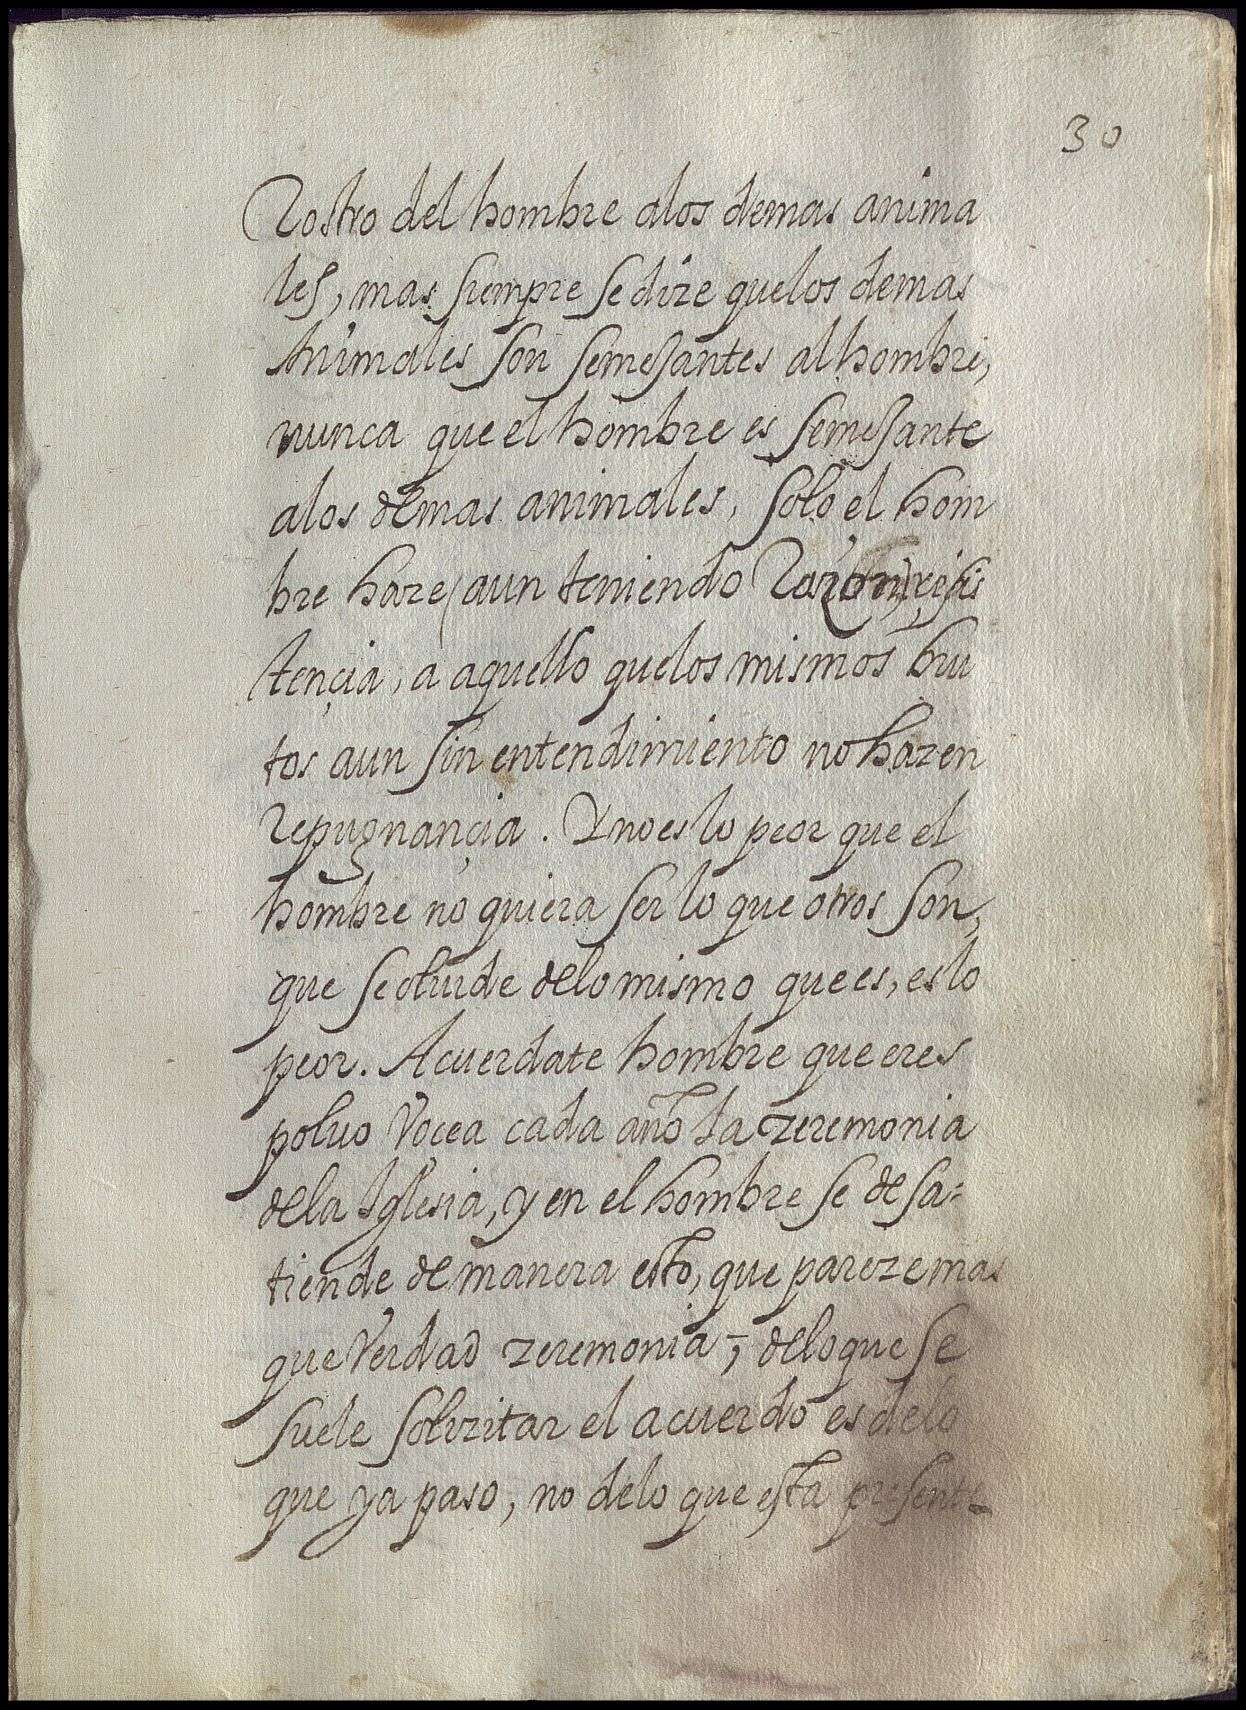 30
Rostro del hombre alos demas anima
les, mas siempre se dize quelos demas
Animales son semejantes al hombre,
nunca que el hombre es semejante
alos demas animales, solo el hom
bre haze (aun teniendo Razon) resis
tençia, a aquello quelos mismos bru
tos aun sin entendimiento no hazen
Repugnançia. Y no es lo peor que el
hombre no quiera ser lo que otros son,
que se oluide delo mismo que es, es lo
peor. Acuerdate hombre que eres
poluo Vocea cada año la zeremonia
dela Iglesia, y en el hombre se desa=
tiende de manera esto, que pareze mas
que Verdad zeremonia, delo que se
suele solizitar el acuerdo es delo
que ya paso, no delo que esta presente